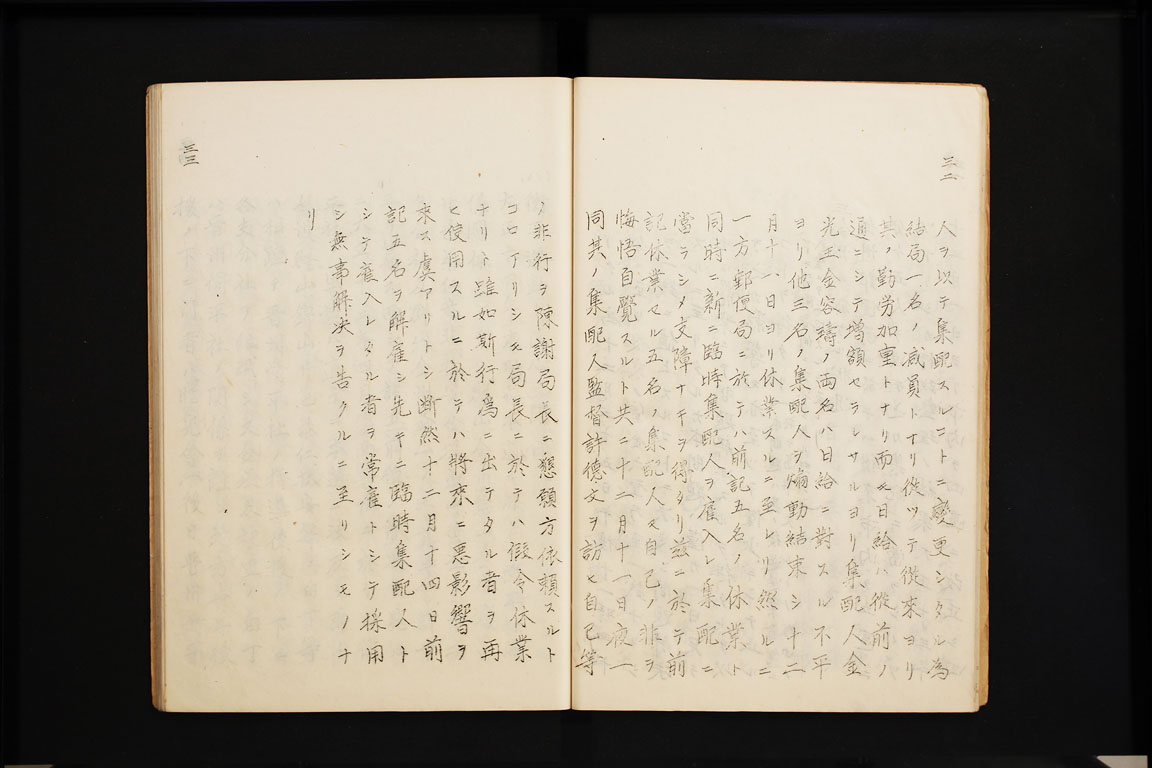 三二
人ヲ以テ集配スルコトニ變更シタル為
結局一名ノ減員トナリ從ツテ從來ヨリ
其ノ勤労加重トナリ而モ日給ハ從前ノ
通ニシテ増額セラレサルヨリ集配人金
光玉金容璹ノ両名ハ日給ニ對スル不平
ヨリ他三名ノ集配人ヲ煽動結束シ十二
月十八日ヨリ休業スルニ至レリ然ルニ
一方郵便局ニ於テハ前記五名ノ休業ト
同時ニ新ニ臨時集配人ヲ雇入レ集配ニ
當ラシメ支障ナキヲ得タリ茲ニ於テ前
記休業セル五名ノ集配人モ自己ノ非ヲ
悔悟自覺スルト共ニ十二月十一日夜一
同其ノ集配人監督許德文ヲ訪ヒ自己等
三三
ノ非行ヲ陳謝局長ニ懇願方依頼スルト
コロアリシモ局長ニ於テハ假令休業
ナリト雖如斯行為ニ出テタル者ヲ再
ヒ使用スルニ於テハ將來ニ悪影響ヲ
來ス虞アリトシ断然十二月十四日前
記五名ヲ解雇シ先キニ臨時集配人ト
シテ雇入レタル者ヲ常雇トシテ採用
シ無事解决ヲ告クルニ至リシモノナ
リ